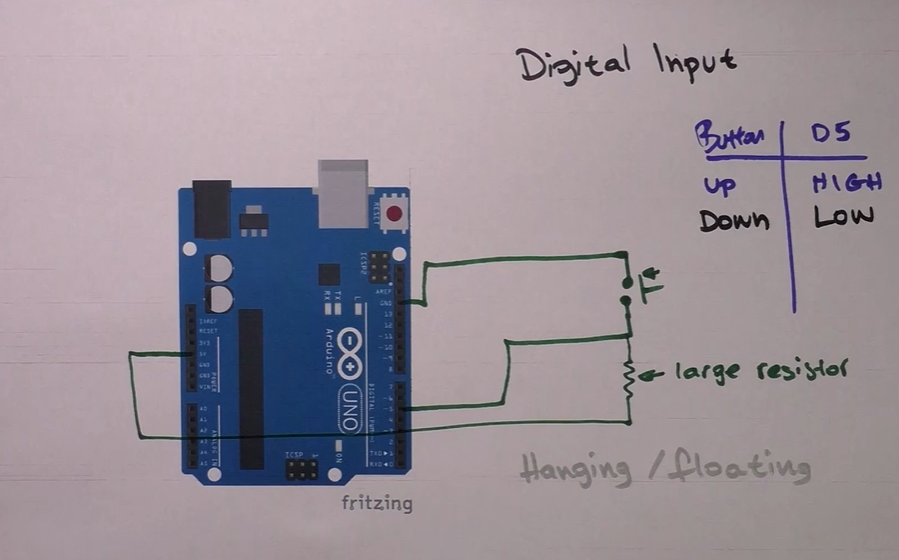 Digital Input
Button D5
UP HIGH
Down LOW
large resistor
Hanging / floating
fritzing
RESET
ICSP2
AREF
GND
13
12
~11
~10
~9
8
7
L
TX
RX
Arduino
UNO
ON
ICSP
IOREF
RESET
3V3
5V
GND
GND
VIN
POWER
A0
A1
A2
A3
A4
A5
ANALOG IN
TXD
RXD